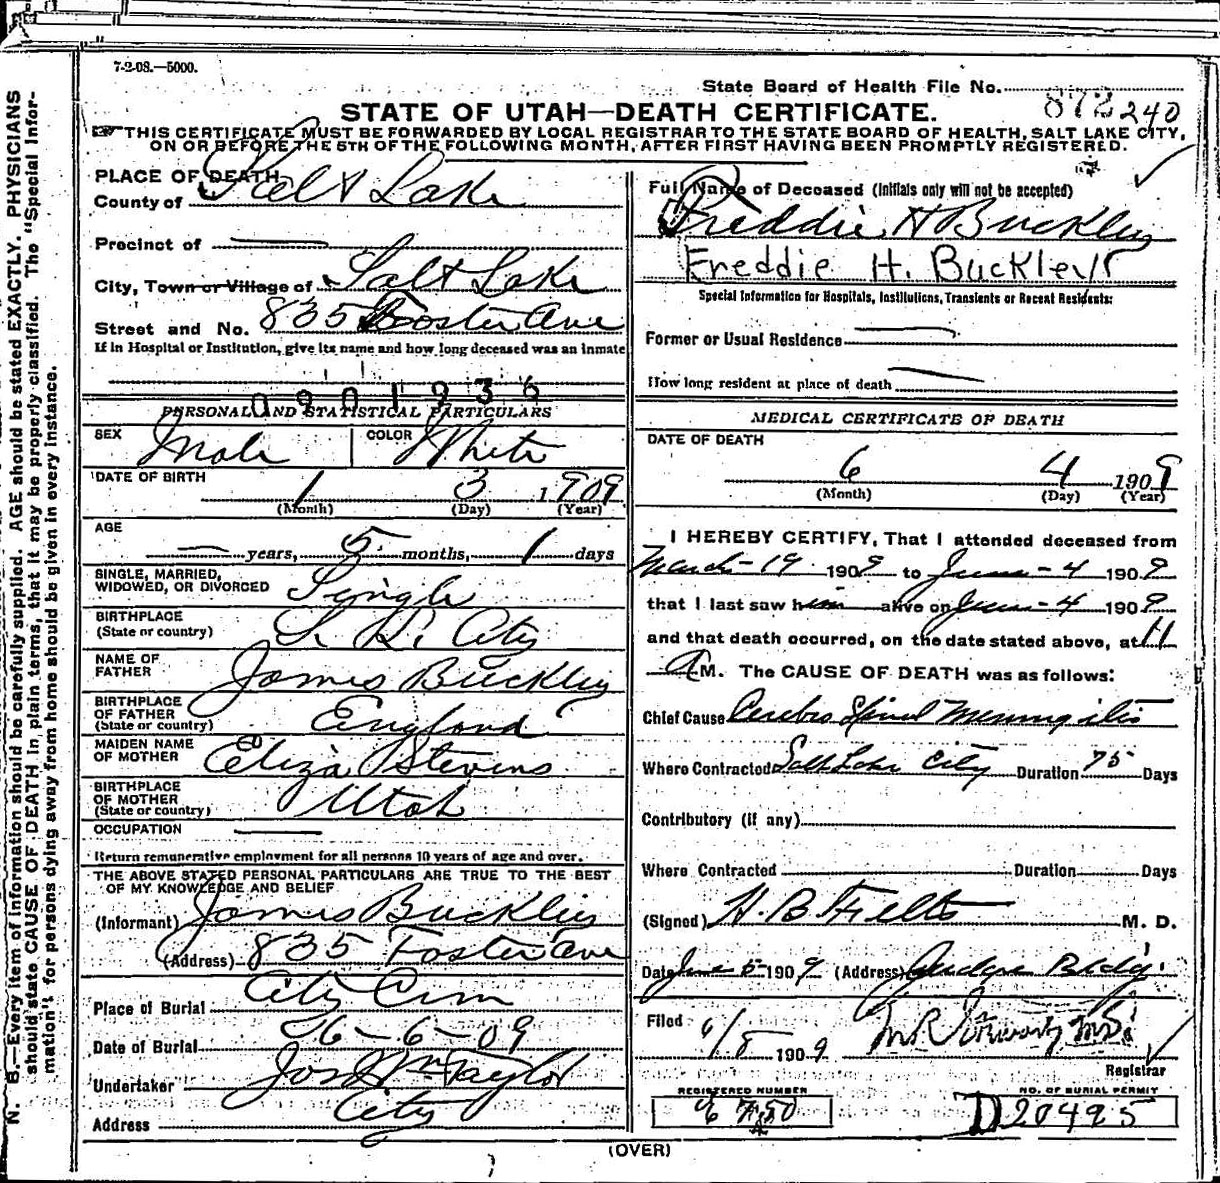 7-2-08.—5000.
State Board of Health File No. 872 240
STATE OF UTAH—DEATH CERTIFICATE.
THIS CERTIFICATE MUST BE FORWARDED BY LOCAL REGISTRAR TO THE STATE BOARD OF HEALTH, SALT LAKE CITY,
ON OR BEFORE THE 5TH OF THE FOLLOWING MONTH, AFTER FIRST HAVING BEEN PROMPTLY REGISTERED.
N. B.—Every item of information should be carefully supplied. AGE should be stated EXACTLY. PHYSICIANS
should state CAUSE OF DEATH in plain terms, that it may be properly classified. The "Special Infor-
mation" for persons dying away from home should be given in every instance.
PLACE OF DEATH
County of Salt Lake
Precinct of —
City, Town or Village of Salt Lake
Street and No. 835 Foster Ave
If in Hospital or Institution, give its name and how long deceased was an inmate
0901936
PERSONAL AND STATISTICAL PARTICULARS
SEX Male COLOR White
DATE OF BIRTH 1 3 1909
(Month) (Day) (Year)
AGE
— years, 5 months, 1 days
SINGLE, MARRIED,
WIDOWED, OR DIVORCED Single
BIRTHPLACE
(State or country) S. L. City
NAME OF
FATHER James Buckley
BIRTHPLACE
OF FATHER
(State or country) England
MAIDEN NAME
OF MOTHER Eliza Stevens
BIRTHPLACE
OF MOTHER
(State or country) Utah
OCCUPATION —
Return remunerative employment for all persons 10 years of age and over.
THE ABOVE STATED PERSONAL PARTICULARS ARE TRUE TO THE BEST
OF MY KNOWLEDGE AND BELIEF
(Informant) James Buckley
(Address) 835 Foster Ave
Place of Burial City Cem
Date of Burial 6-6-09
Undertaker Jos Wm Taylor
Address City
Full Name of Deceased (Initials only will not be accepted)
Freddie H Buckley
Freddie H. Buckley
Special Information for Hospitals, Institutions, Transients or Recent Residents:
Former or Usual Residence —
How long resident at place of death —
MEDICAL CERTIFICATE OF DEATH
DATE OF DEATH
6 4 1909
(Month) (Day) (Year)
I HEREBY CERTIFY, That I attended deceased from
March-19 1909 to June-4 1909
that I last saw him alive on June-4 1909
and that death occurred, on the date stated above, at 11
A M. The CAUSE OF DEATH was as follows:
Chief Cause Cerebro Spinal Meningitis
Where Contracted Salt Lake City Duration 75 Days
Contributory (if any)
Where Contracted Duration Days
(Signed) H. B. Felts M. D.
Date June 5 1909 (Address) Judge Bldg.
Filed 6/8 1909 M.D.
Registrar
REGISTERED NUMBER
NO. OF BURIAL PERMIT
D 20495
(OVER)